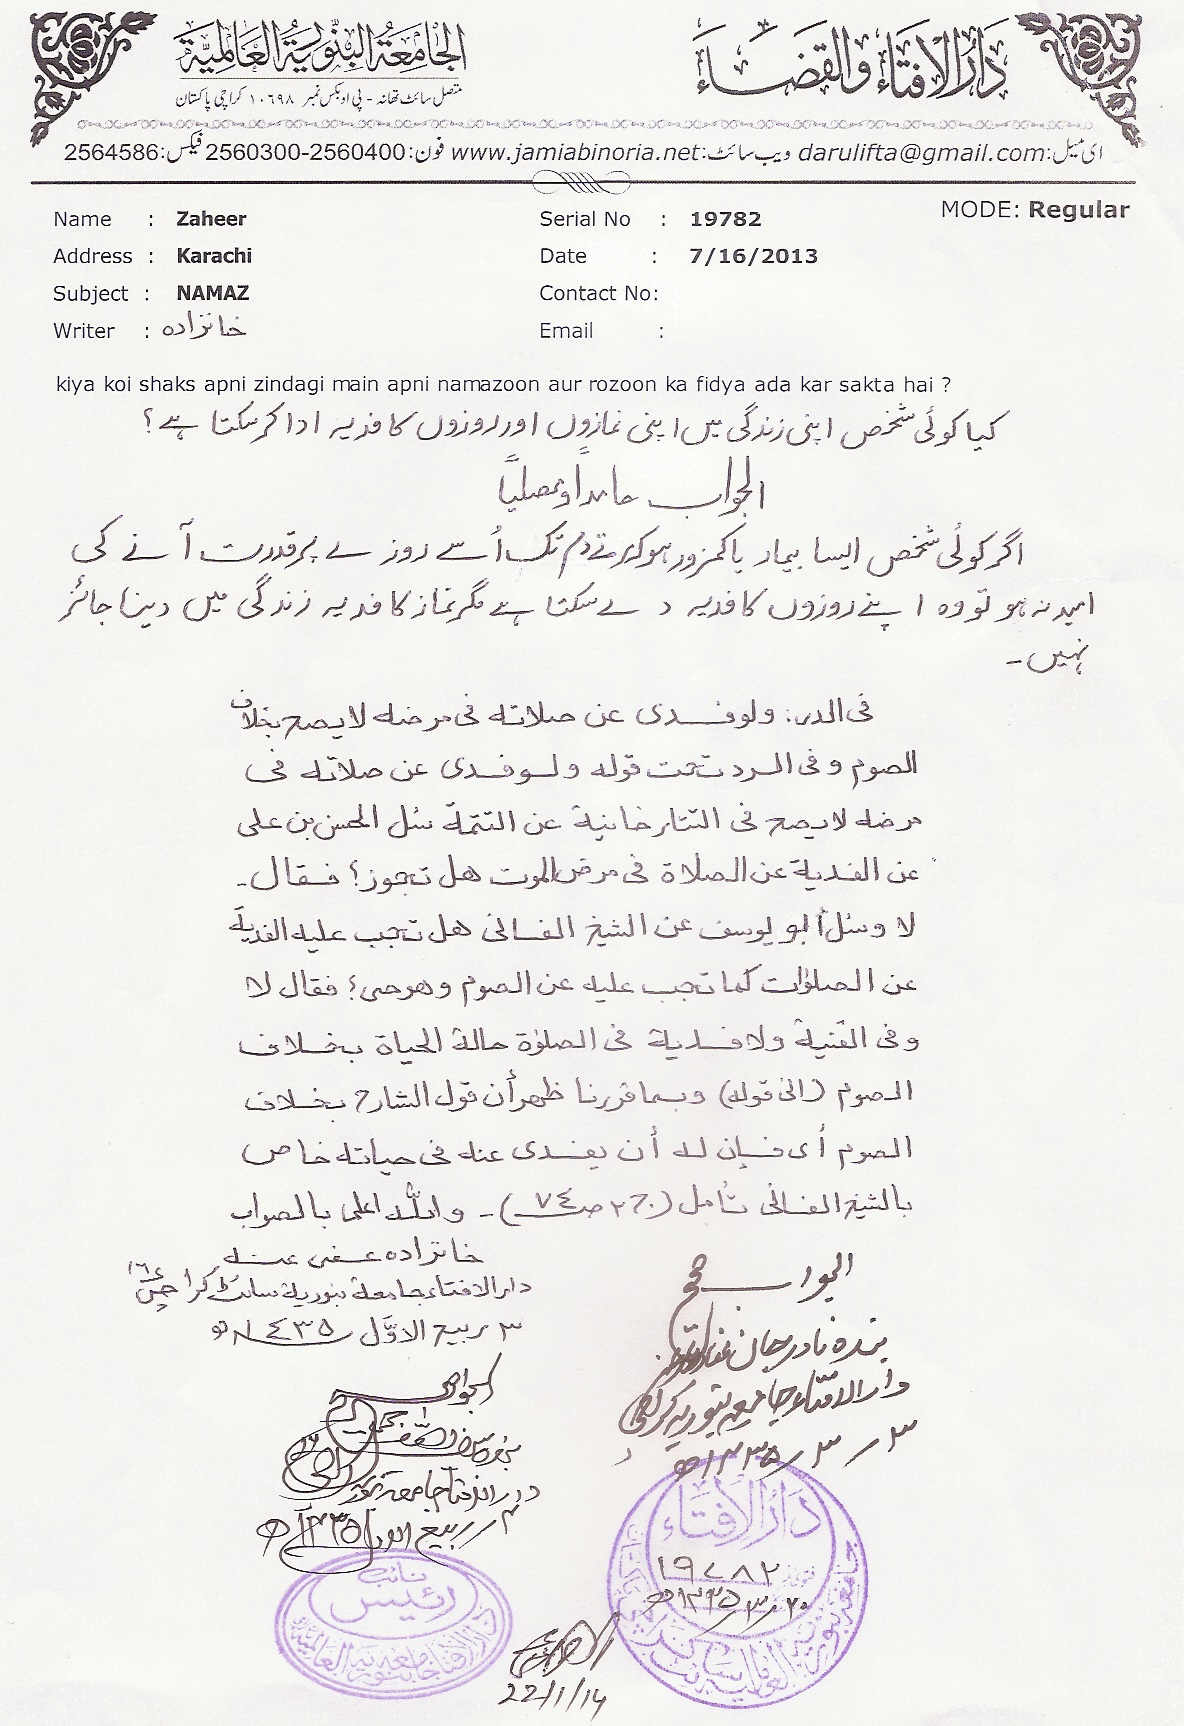 الجامعۃ البنوریۃ العالمیۃ
دار الافتاء والقضاء
متصل سائٹ تھانہ - پی او بکس نمبر ۱۰۶۹۸ کراچی پاکستان
ای میل:darulifta@gmail.com ویب سائٹ:www.jamiabinoria.net فون:2560300-2560400 فیکس:2564586
MODE: Regular
Name : Zaheer
Serial No : 19782
Address : Karachi
Date : 7/16/2013
Subject : NAMAZ
Contact No:
Writer : خانزادہ
Email :
kiya koi shaks apni zindagi main apni namazoon aur rozoon ka fidya ada kar sakta hai ?
کیا کوئی شخص اپنی زندگی میں اپنی نمازوں اور روزوں کا فدیہ ادا کر سکتا ہے؟
الجواب حامداً ومصلیاً
اگر کوئی شخص ایسا بیمار یا کمزور ہو کہ مرتے دم تک اُسے روزے پر قدرت آنے کی
امید نہ ہو تو وہ اپنے روزوں کا فدیہ دے سکتا ہے مگر نماز کا فدیہ زندگی میں دینا جائز
نہیں۔
فی الدر: ولو فدی عن صلاته فی مرضه لا یصح بخلاف
الصوم وفی الرد تحت قوله ولو فدی عن صلاته فی
مرضه لا یصح فی التتارخانیة عن التتمة سئل الحسن بن علی
عن الفدیة عن الصلاة فی مرض الموت هل تجوز؟ فقال۔
لا وسئل أبو یوسف عن الشیخ الفانی هل تجب علیه الفدیة
عن الصلوات کما تجب علیه عن الصوم وهو حی؟ فقال لا
وفی القنیة ولا فدیة فی الصلوٰة حالة الحیاة بخلاف
الصوم (الی قوله) وبما قررنا ظهر أن قول الشارح بخلاف
الصوم أی فإن له أن یفدی عنه فی حیاته خاص
بالشیخ الفانی تأمل (ج۲ ص۷٤)۔ واللہ اعلم بالصواب
خانزادہ عفی عنہ
دارالافتاء جامعة بنوریة سائٹ کراچی ۱۶
۳ ربیع الاوّل ۱٤۳۵ھ
الجواب صحیح
بندہ نادر جان
دارالافتاء جامعہ بنوریہ کراچی
۳ / ۳ / ۱۴۳۵ھ
الجواب صحیح
دارالافتاء جامعہ بنوریہ
ربیع الاول ۱۴۳۵ھ
دار الافتاء
۱۹۷۸۲
۲۰/۳/۱۴۳۵ھ
نائب
رئیس
دار الافتاء جامعہ بنوریہ العالمیہ
22/1/14